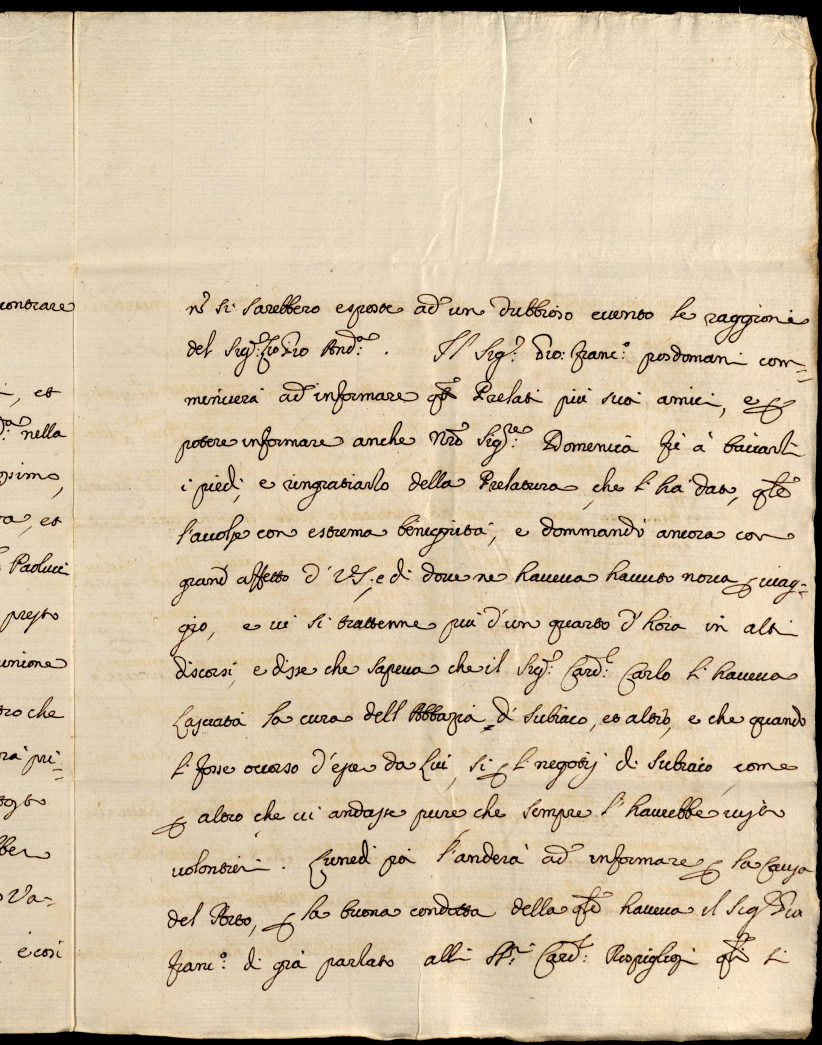 contrare
, et
nella
ssimo,
ra, et
Paolucci
presto
unione
tro che
rà pri-
ber
Va-
e così
no si sarebbero esposte ad un dubbioso evento le raggioni
del Sig.r And.a. Il Sig.r Gio: Franc.o posdomani com-
mincierà ad informare q.ti Prelati più suoi amici, e p
potere informare anche Nrō Sig.re Domenica fù à bacciarli
i piedi, e ringratiarlo della Prelatura, che l'hà dato, q.le
l'accolse con estrema benignità, e dommandò ancora con
grand' affetto d' V.S., e di dove ne haveva havuto nova p viag-
gio, e vi si trattenne più d'un quarto d'hora in altri
discorsi, e disse che sapeva che il Sig.r Card.l Carlo li haveva
lasciata la cura dell'Abbazia di Subiaco, et altro, e che quando
li fosse occorso d'esser da Lui, si p li negotij di Subiaco come
p altro che vi andasse pure che sempre l'haverebbe visto
volontieri. Lunedì poi l'anderà ad informare p la Causa
del Porto, p la buona condotta della q.le haveva il Sig.r Gio
Franc.o di già parlato alli SS.ri Card.li Rospigliosi q.li li